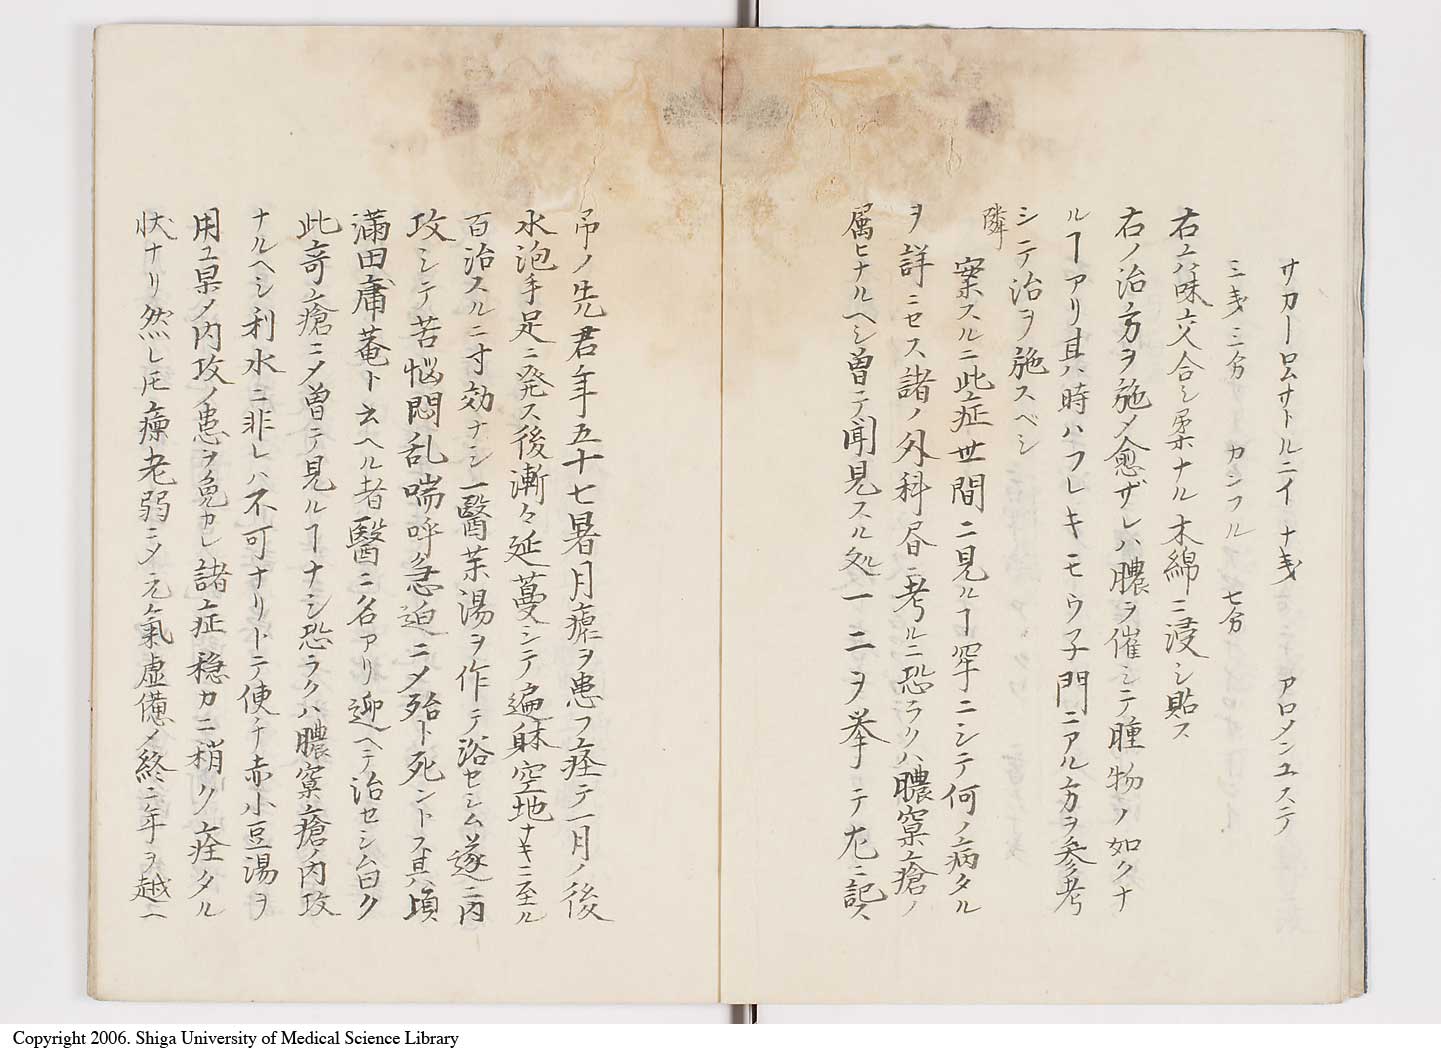 サカーロムサトルニイ ナ戔 アロメンユステ
三戔三分 カンフル 七分
右六味交合シ柔ナル木綿ニ浸シ貼ス
右ノ治方ヲ施メ愈ザレハ膿ヲ催シテ腫物ノ如クナ
ルヿアリ其時ハフレキモウ子門ニアル方ヲ参考
シテ治ヲ施スベシ
隣
案スルニ此症世間ニ見ルヿ罕ニシテ何ノ病タル
ヲ詳ニセス諸ノ外科昏ニ考ルニ恐ラクハ膿窠瘡ノ
属ヒナルヘシ曽テ聞見スル処一二ヲ挙テ左ニ記ス
吊ノ先君年五十七暑月瘧ヲ患フ痊テ一月ノ後
水泡手足ニ発ス後漸々延蔓シテ遍躰空地ナキニ至ル
百治スルニ寸効ナシ一醫茉湯ヲ作テ浴セシム遂ニ内
攻シテ苦悩悶乱喘呼急迫ニメ殆ト死ントス其頃
満田庸菴ト云ヘル者醫ニ名アリ迎ヘテ治セシム曰ク
此奇瘡ニメ曽テ見ルヿナシ恐ラクハ膿窠瘡ノ内攻
ナルヘシ利水ニ非レハ不可ナリトテ使チ赤小豆湯ヲ
用ユ果ノ内攻ノ患ヲ免カレ諸症穏カニ稍ク痊タル
状ナリ然レ𪜈痳老弱ニメ元氣虚憊メ終ニ年ヲ越ヘ
Copyright 2006. Shiga University of Medical Science Library